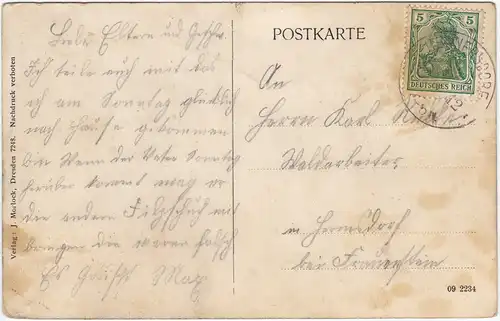 Verlag: J. Morlock, Dresden 7248. Nachdruck verboten
Liebe Eltern und Geschw.
Ich teile auch mit das
ich am Sonntag glücklich
nach Hause gekommen
bin Wenn der Vater Sonntag
herüber kommt mag er
die andern Filzschuh mit
bringen die waren falsch
Es Grüßt Max
POSTKARTE
5 5
DEUTSCHES REICH
An
Herrn Karl
Waldarbeiter
in Hermsdorf
bei Frauenstein
09 2234